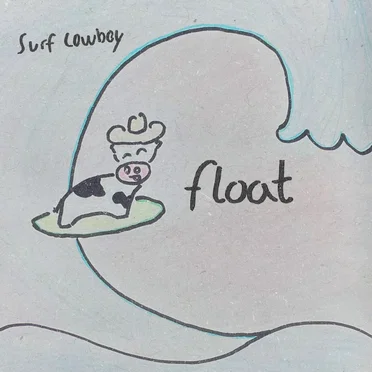 Surf Cowboy
float